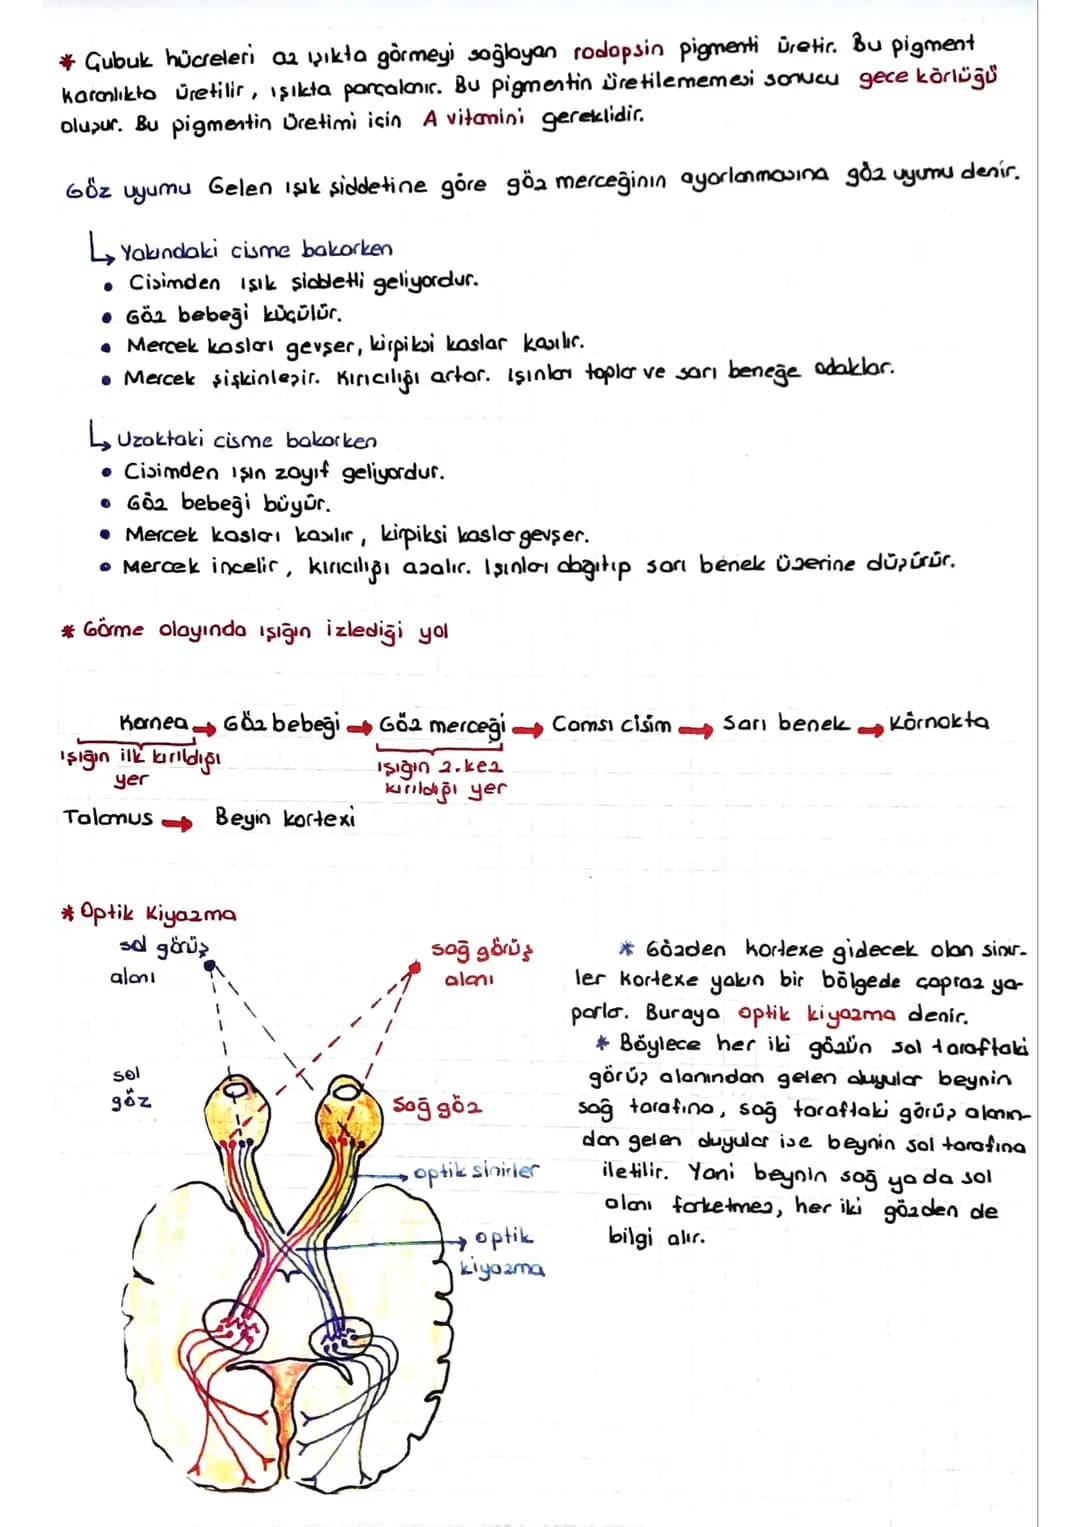 * Çubuk hücreleri az ışıkta görmeyi sağlayan rodopsin pigmenti üretir. Bu pigment
karanlıkta üretilir, ışıkta parçalanır. Bu pigmentin üretilememesi sonucu gece körlüğü
oluşur. Bu pigmentin üretimi için A vitamini gereklidir.
Göz uyumu Gelen ışık şiddetine göre göz merceğinin ayarlanmasına göz uyumu denir.
↳ Yakındaki cisme bakarken
• Cisimden ışık şiddetli geliyordur.
• Göz bebeği küçülür.
• Mercek kasları gevşer, kirpiksi kaslar kasılır.
• Mercek şişkinleşir. Kırıcılığı artar. Işınları toplar ve sarı beneğe odaklar.
↳ Uzaktaki cisme bakarken
• Cisimden ışın zayıf geliyordur.
• Göz bebeği büyür.
• Mercek kasları kasılır, kirpiksi kaslar gevşer.
• Mercek incelir, kırıcılığı azalır. Işınları dağıtıp sarı benek üzerine düşürür.
* Görme olayında ışığın izlediği yol
Kornea → Göz bebeği → Göz merceği → Camsı cisim → Sarı benek → Körnokta
ışığın ilk kırıldığı
yer
ışığın 2.kez
kırıldığı yer
Talamus → Beyin kortexi
* Optik Kiyazma
sol görüş
alanı
sağ görüş
alanı
sol
göz
Sağ göz
optik sinirler
optik
kiyazma
* Gözden kortexe gidecek olan sinir-
ler kortexe yakın bir bölgede çapraz ya-
parlar. Buraya optik kiyazma denir.
* Böylece her iki gözün sol taraftaki
görüş alanından gelen duyular beynin
sağ tarafına, sağ taraftaki görüş alanın-
dan gelen duyular ise beynin sol tarafına
iletilir. Yani beynin sağ ya da sol
alanı farketmez, her iki gözden de
bilgi alır.